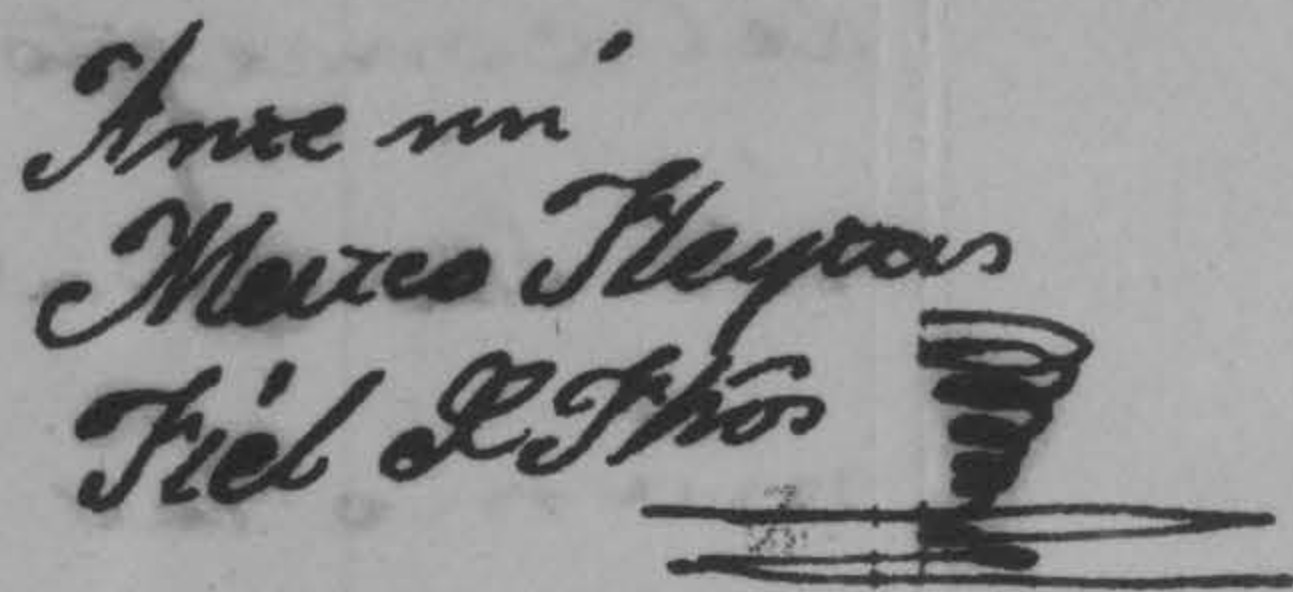 Ante mi
Marco Reyras
Fiel D Fhôs